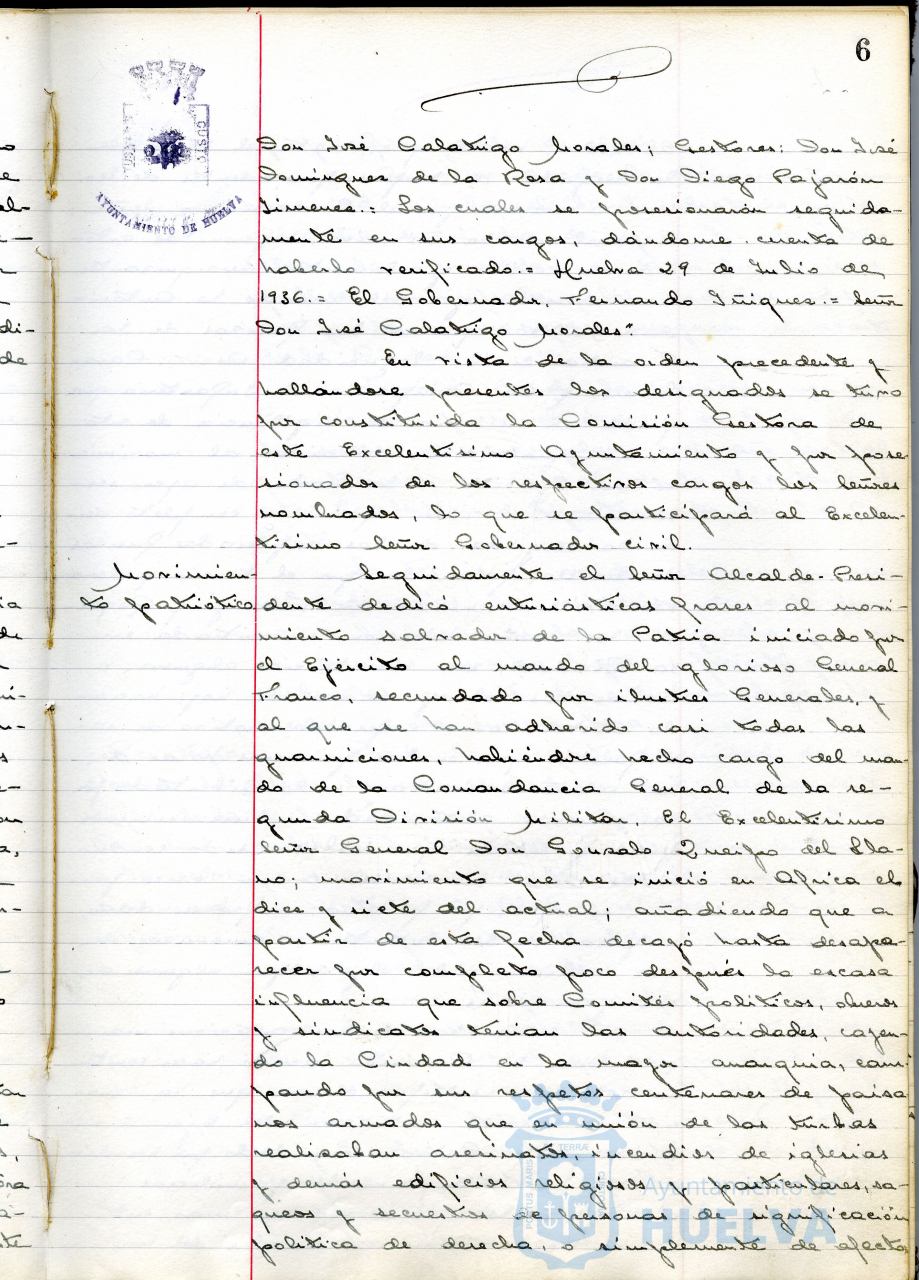 6
AYUNTAMIENTO DE HUELVA
Don José Calatrigo Morales; Gestores: Don José
Dominguez de la Rosa y Don Diego Pajarón
Jimenez.= Los cuales se posesionarón seguida-
mente en sus cargos, dándome cuenta de
haberlo verificado.= Huelva 29 de Julio de
1936.= El Gobernador, Fernando Iñiguez.= Señor
Don José Calatrigo Morales"
En vista de la orden precedente y
hallándose presentes los designados se tuvo
por constituida la Comisión Gestora de
este Excelentisimo Ayuntamiento y por pose-
sionados de los respectivos cargos los Señores
nombrados, lo que se participará al Excelen-
tisimo Señor Gobernador civil.
Movimien-
to patriótico
Seguidamente el Señor Alcalde-Presi-
dente dedicó entusiásticas frases al movi-
miento salvador de la Patria iniciado por
el Ejército al mando del glorioso General
Franco, secundado por ilustres Generales, y
al que se han adherido casi todas las
guarniciones, habiéndose hecho cargo del man-
do de la Comandancia General de la se-
gunda División Militar, El Excelentisimo
Señor General Don Gonzalo Queipo del Lla-
no; movimiento que se inició en Africa el
diez y siete del actual; añadiendo que a
partir de esta fecha decayó hasta desapa-
recer por completo poco después la escasa
influencia que sobre Comités politicos, obreros
y sindicatos tenian las autoridades, cayen-
do la Ciudad en la mayor anarquia, cam-
pando por sus respetos centenares de paisa-
nos armados que en unión de las turbas
realizaban asesinatos, incendios de iglesias
y demás edificios religiosos y particulares, sa-
queos y secuestros de personas de significación
politica de derecha, o simplemente de afecto
Ayuntamiento de
HUELVA